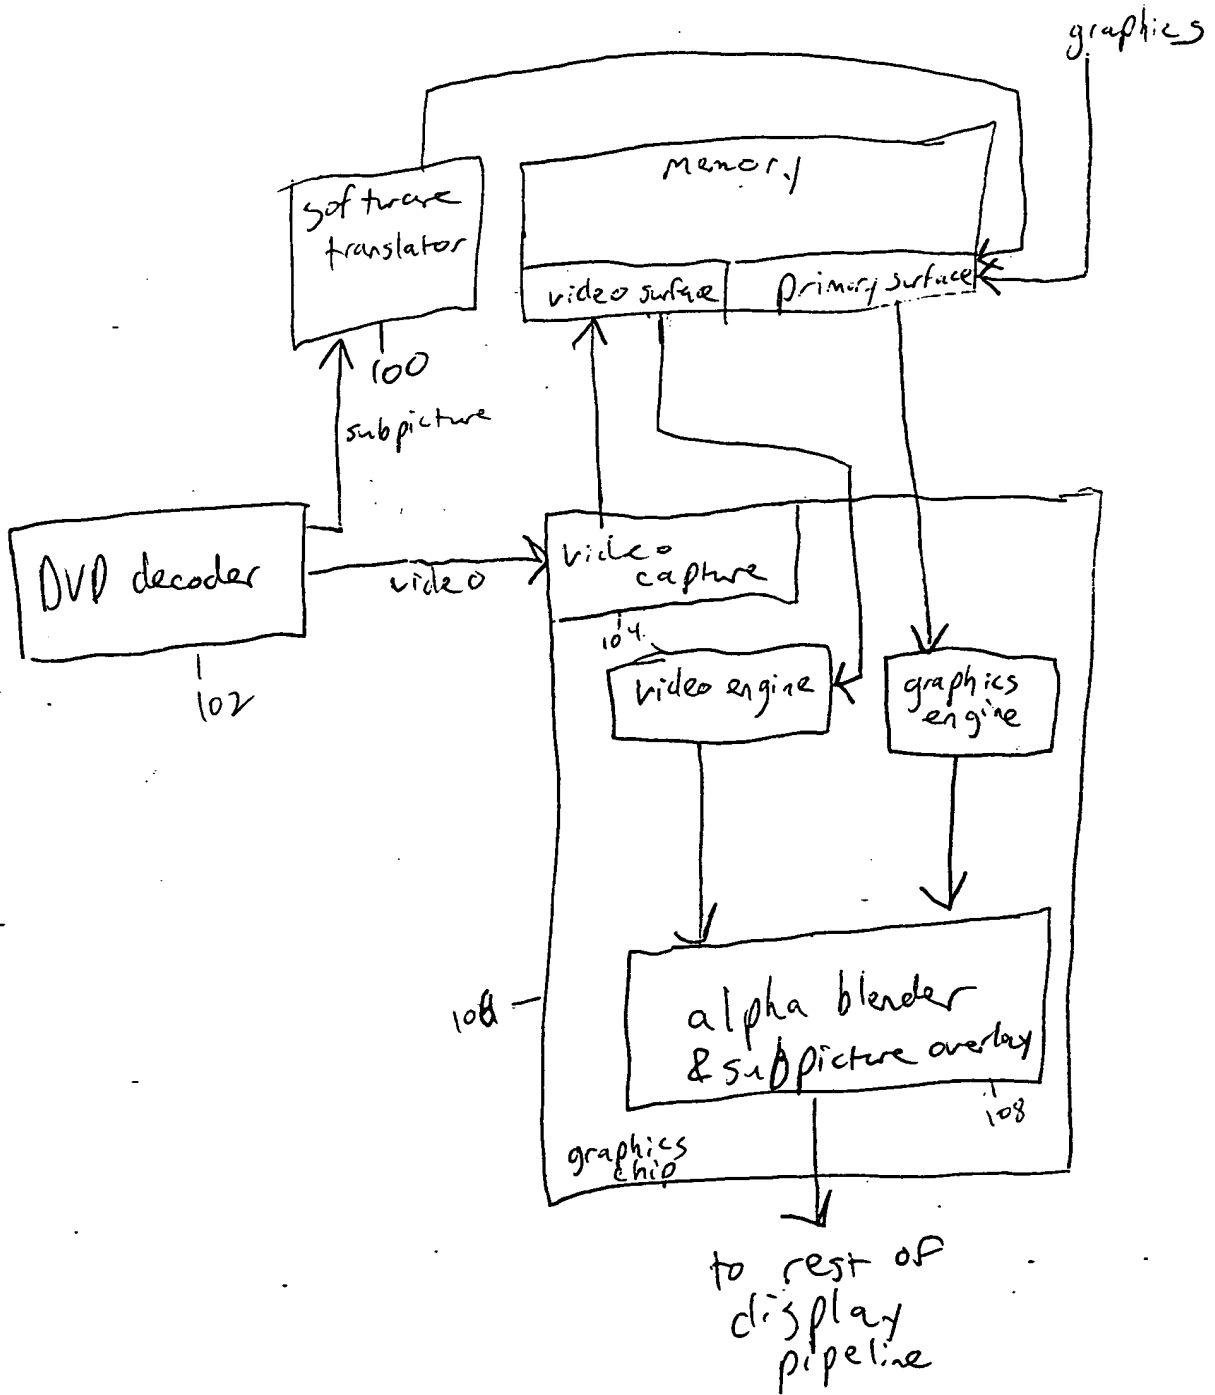 graphics
Memory
software
translator
video surface
primary surface
100
subpicture
DVD decoder
video
video
capture
104
102
video engine
graphics
engine
alpha blender
& subpicture overlay
108
graphics
chip
to rest of
display
pipeline